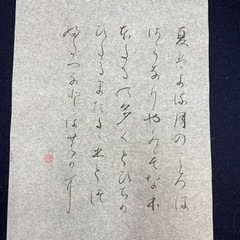 夏はよる月のころは
さらなりやみもなほ
ほたるの多くとびちが
ひたるまたただひとつ
ふたつなどほのかに